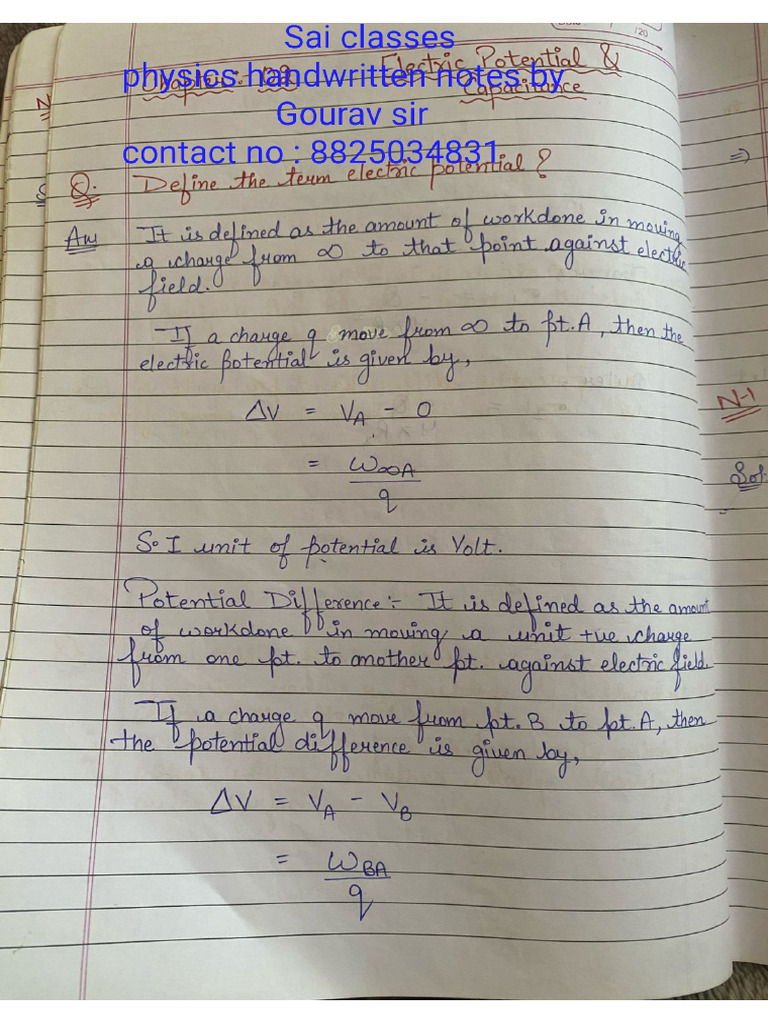 Sai classes
physics handwritten notes by
Gourav sir
contact no : 8825034831
Electric Potential &
Capacitance
Q. Define the term electric potential?
Ans It is defined as the amount of workdone in moving
a charge from ∞ to that point against electric
field.
If a charge q move from ∞ to pt. A, then the
electric potential is given by,
ΔV = VA - 0
= W∞A
q
S.I unit of potential is Volt.
Potential Difference:- It is defined as the amount
of workdone in moving a unit +ve charge
from one pt. to another pt. against electric field.
If a charge q move from pt. B to pt. A, then
the potential difference is given by,
ΔV = VA - VB
= WBA
q
⇒
N-1
Sol.